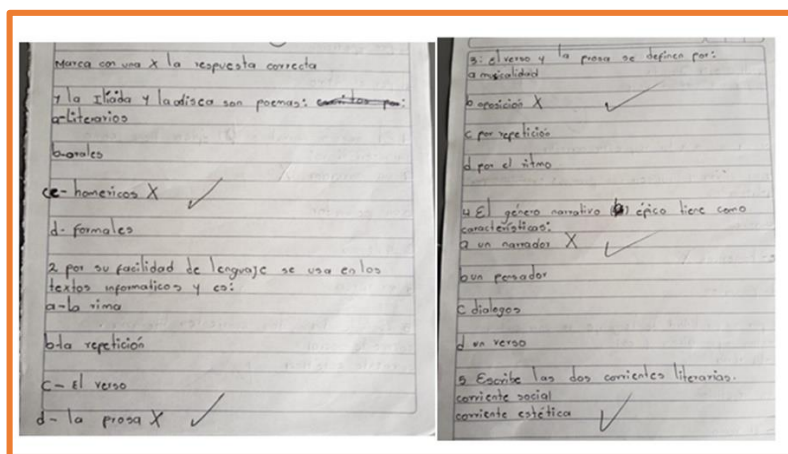 Marca con una X la respuesta correcta
1 la Iliáda y la odisea son poemas:
a-Literarios
b-orales
c- homericos X
d- formales
2 por su facilidad de lenguaje se usa en los
textos informaticos y es:
a-la rima
b-la repetición
c- El verso
d- la prosa X
3: el verso y la prosa se definen por:
a musicalidad
b oposición X
c por repetición
d por el ritmo
4 El género narrativo épico tiene como
características:
a un narrador X
b un pensador
c dialogos
d un verso
5 Escribe las dos corrientes literarias.
corriente social
corriente estética